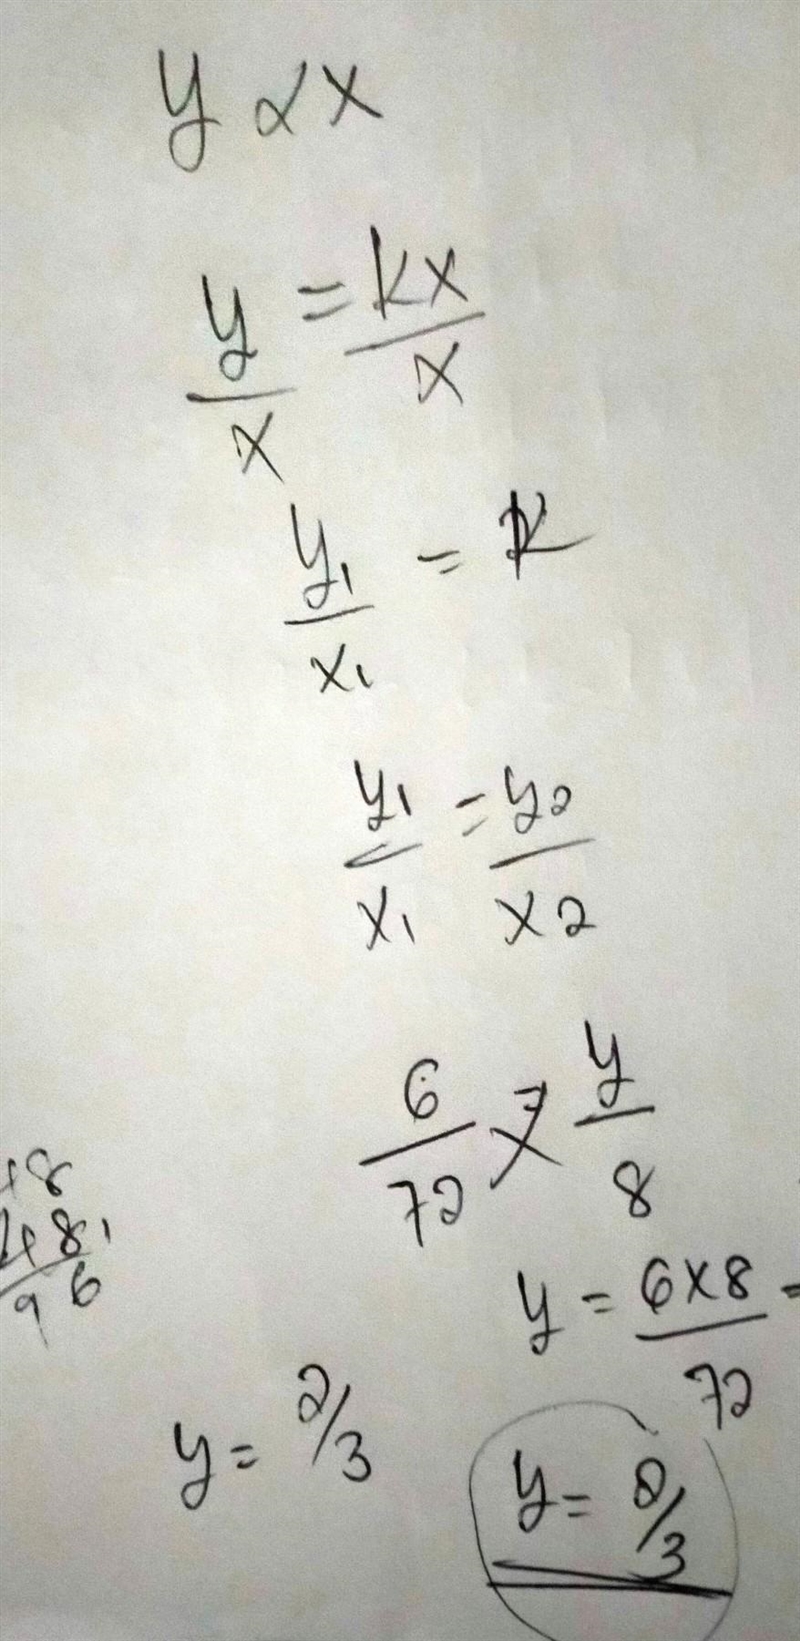 y ∝ x
y/x = kx/x
y1/x1 = k
y1/x1 = y2/x2
6/72 = y/8
48
48
96
y = 6x8/72 =
y = 2/3
y = 2/3